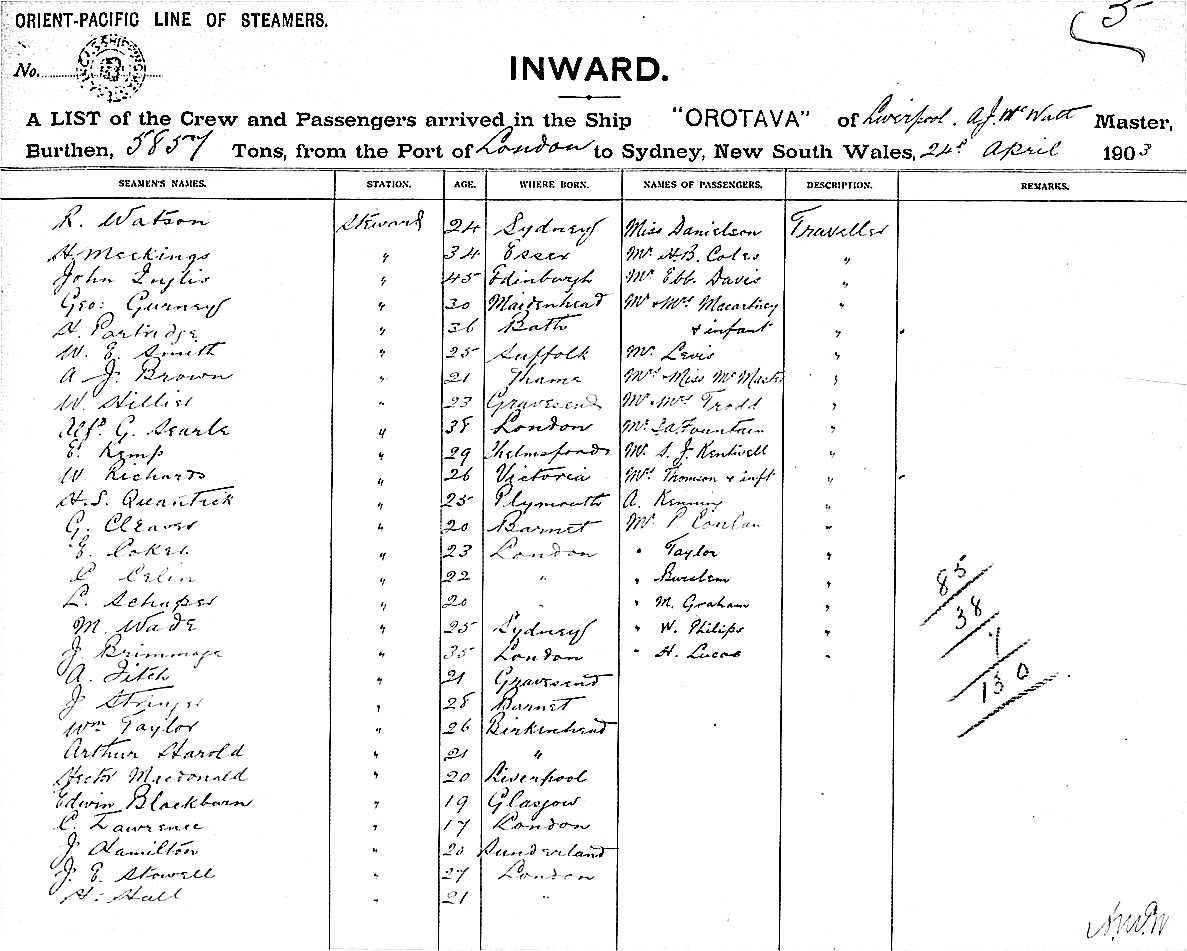 ORIENT-PACIFIC LINE OF STEAMERS.
5
No.
INWARD.
A LIST of the Crew and Passengers arrived in the Ship "OROTAVA" of Liverpool. A.J. McWatt Master,
Burthen, 5857 Tons, from the Port of London to Sydney, New South Wales, 24th April 1903
SEAMEN'S NAMES. STATION. AGE. WHERE BORN. NAMES OF PASSENGERS. DESCRIPTION. REMARKS.
R. Watson Steward 24 Sydney Miss Danielson Traveller
H. Meekings " 34 Essex Mr H.B. Coles "
John Inglis " 45 Edinburgh Mr Ebb. Davis "
Geo: Gurney " 30 Maidenhead Mr & Mrs Macartney "
H. Partridge " 36 Bath & infant "
W. E. Smith " 25 Suffolk Mr Levis "
A J. Brown " 21 Thame Mrs & Miss McMaster "
W. Hillier " 23 Gravesend Mr Mrs Trodd "
Alfd. G. Searle " 38 London Mr Fountain "
E. Kemp " 29 Chelmsford Mr S. J. Kentwell "
W Richards " 26 Victoria Mrs Thomson & inft "
H.S. Quantick " 25 Plymouth A. Kenning "
G. Cleaver " 20 Barnet Mr P Conlan "
E. Coker " 23 London " Taylor "
C " 22 " " Burslem "
L. Schaper " 20 " " M. Graham "
M. Wade " 25 Sydney " W. Philips "
J Brimmage " 35 London " H. Lucas "
A. Fitch " 21 Gravesend
J Stringer " 28 Barnet
Wm Taylor " 26 Birkenhead
Arthur Harold " 21 "
Hector Macdonald " 20 Liverpool
Edwin Blackburn " 19 Glasgow
C. Lawrence " 17 London
J Hamilton " 20 Sunderland
J. E. Stowell " 27 London
H. Hall " 21 "
85
38
7
130